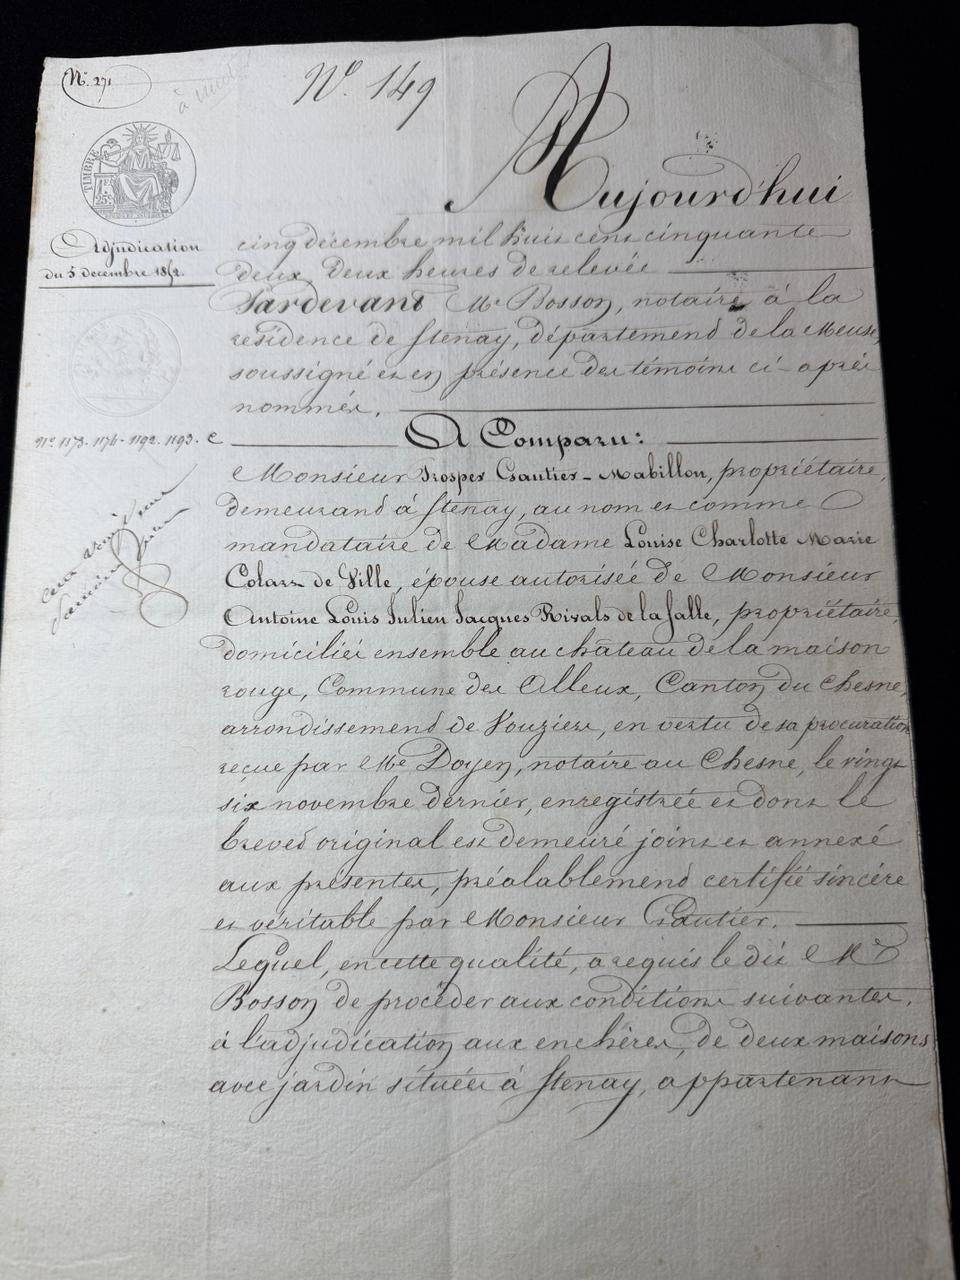 N°. 271
N° 149
TIMBRE
25c
Aujourd'hui
Adjudication
du 5 décembre 1852.
cinq décembre mil huit cent cinquante
deux, deux heures de relevée
Pardevant Me Bosson, notaire à la
résidence de Stenay, département de la Meuse,
soussigné et en présence des témoins ci-après
nommés.
A Comparu:
Nos 1173. 1176 - 1192. 1193. C
Monsieur Prosper Gautier-Mabillon, propriétaire,
demeurant à Stenay, au nom et comme
mandataire de Madame Louise Charlotte Marie
Colart de Ville, épouse autorisée de Monsieur
Antoine Louis Julien Jacques Rivals de la Salle, propriétaire,
domiciliés ensemble au château de la maison
rouge, Commune des Alleux, Canton du Chesne,
arrondissement de Vouziers, en vertu de sa procuration
reçue par Me Doyen, notaire au Chesne, le vingt
six novembre dernier, enregistrée et dont le
brevet original est demeuré joint et annexé
aux présentes, préalablement certifié sincère
et véritable par Monsieur Gautier.
Lequel, en cette qualité, a requis le dit Me
Bosson de procéder aux conditions suivantes,
à l'adjudication aux enchères, de deux maisons
avec jardin situées à Stenay, appartenant